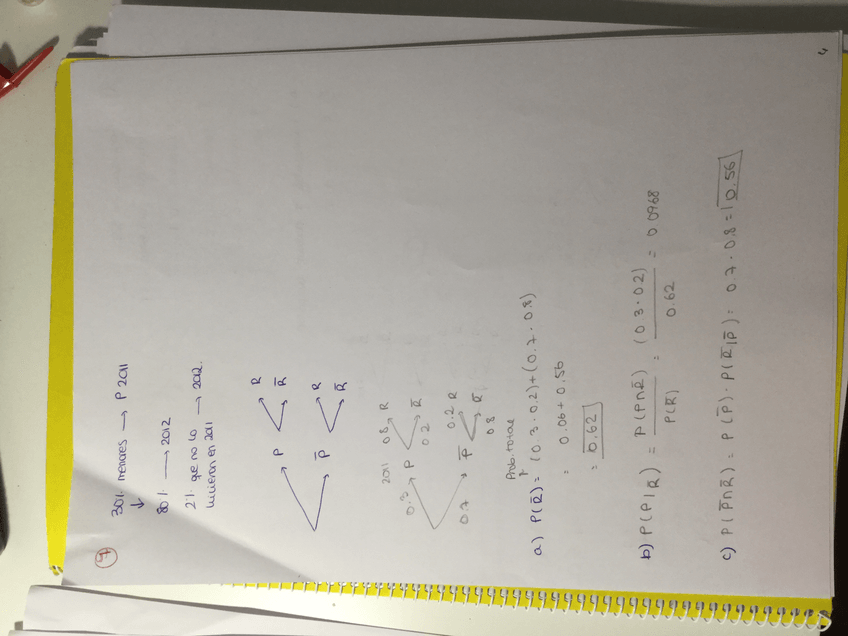 4
30% menores → P 2011
↓
80% → 2012
2% que no lo → 2012.
hicieron en 2011
P R
R̄
P̄ R
R̄
2011
0.3 P 0.8 R
0.2 R̄
0.7 P̄ 0.2 R
0.8 R̄
Prob. total
a) P(R̄) = (0.3 · 0.2) + (0.7 · 0.8)
= 0.06 + 0.56
= 0.62
b) P(P|R̄) = P(P∩R̄) / P(R̄) = (0.3 · 0.2) / 0.62 = 0.0968
c) P(P̄∩R̄) = P(P̄) · P(R̄|P̄) = 0.7 · 0.8 = 0.56